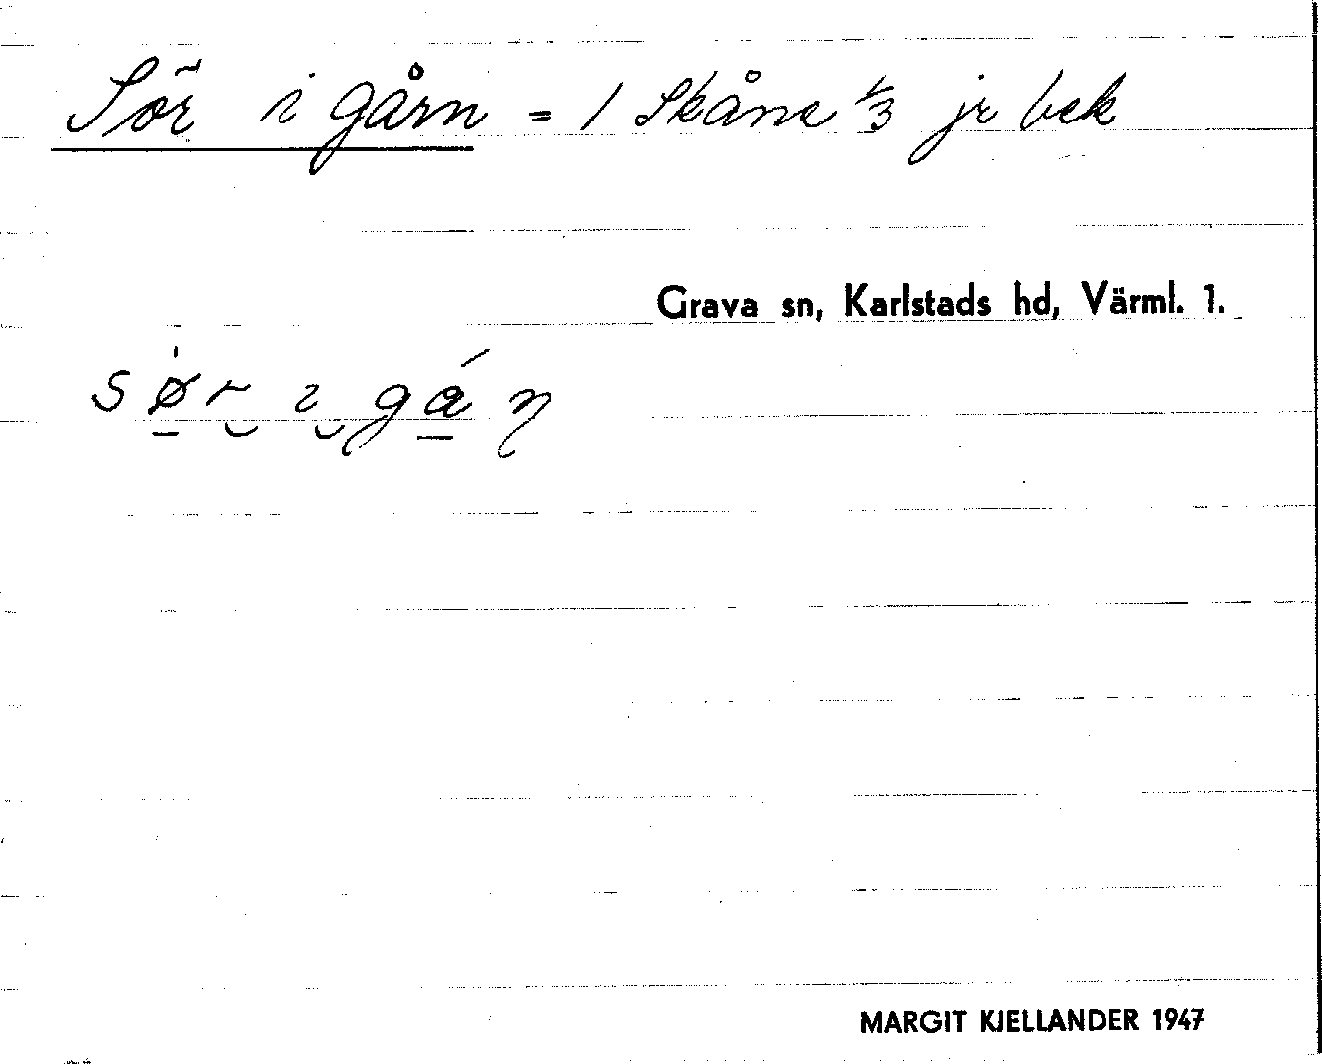 Sör i gårn = 1 Skåne 1/3 jr bek
Grava sn, Karlstads hd, Värml. 1.
sør i gån
MARGIT KJELLANDER 1947